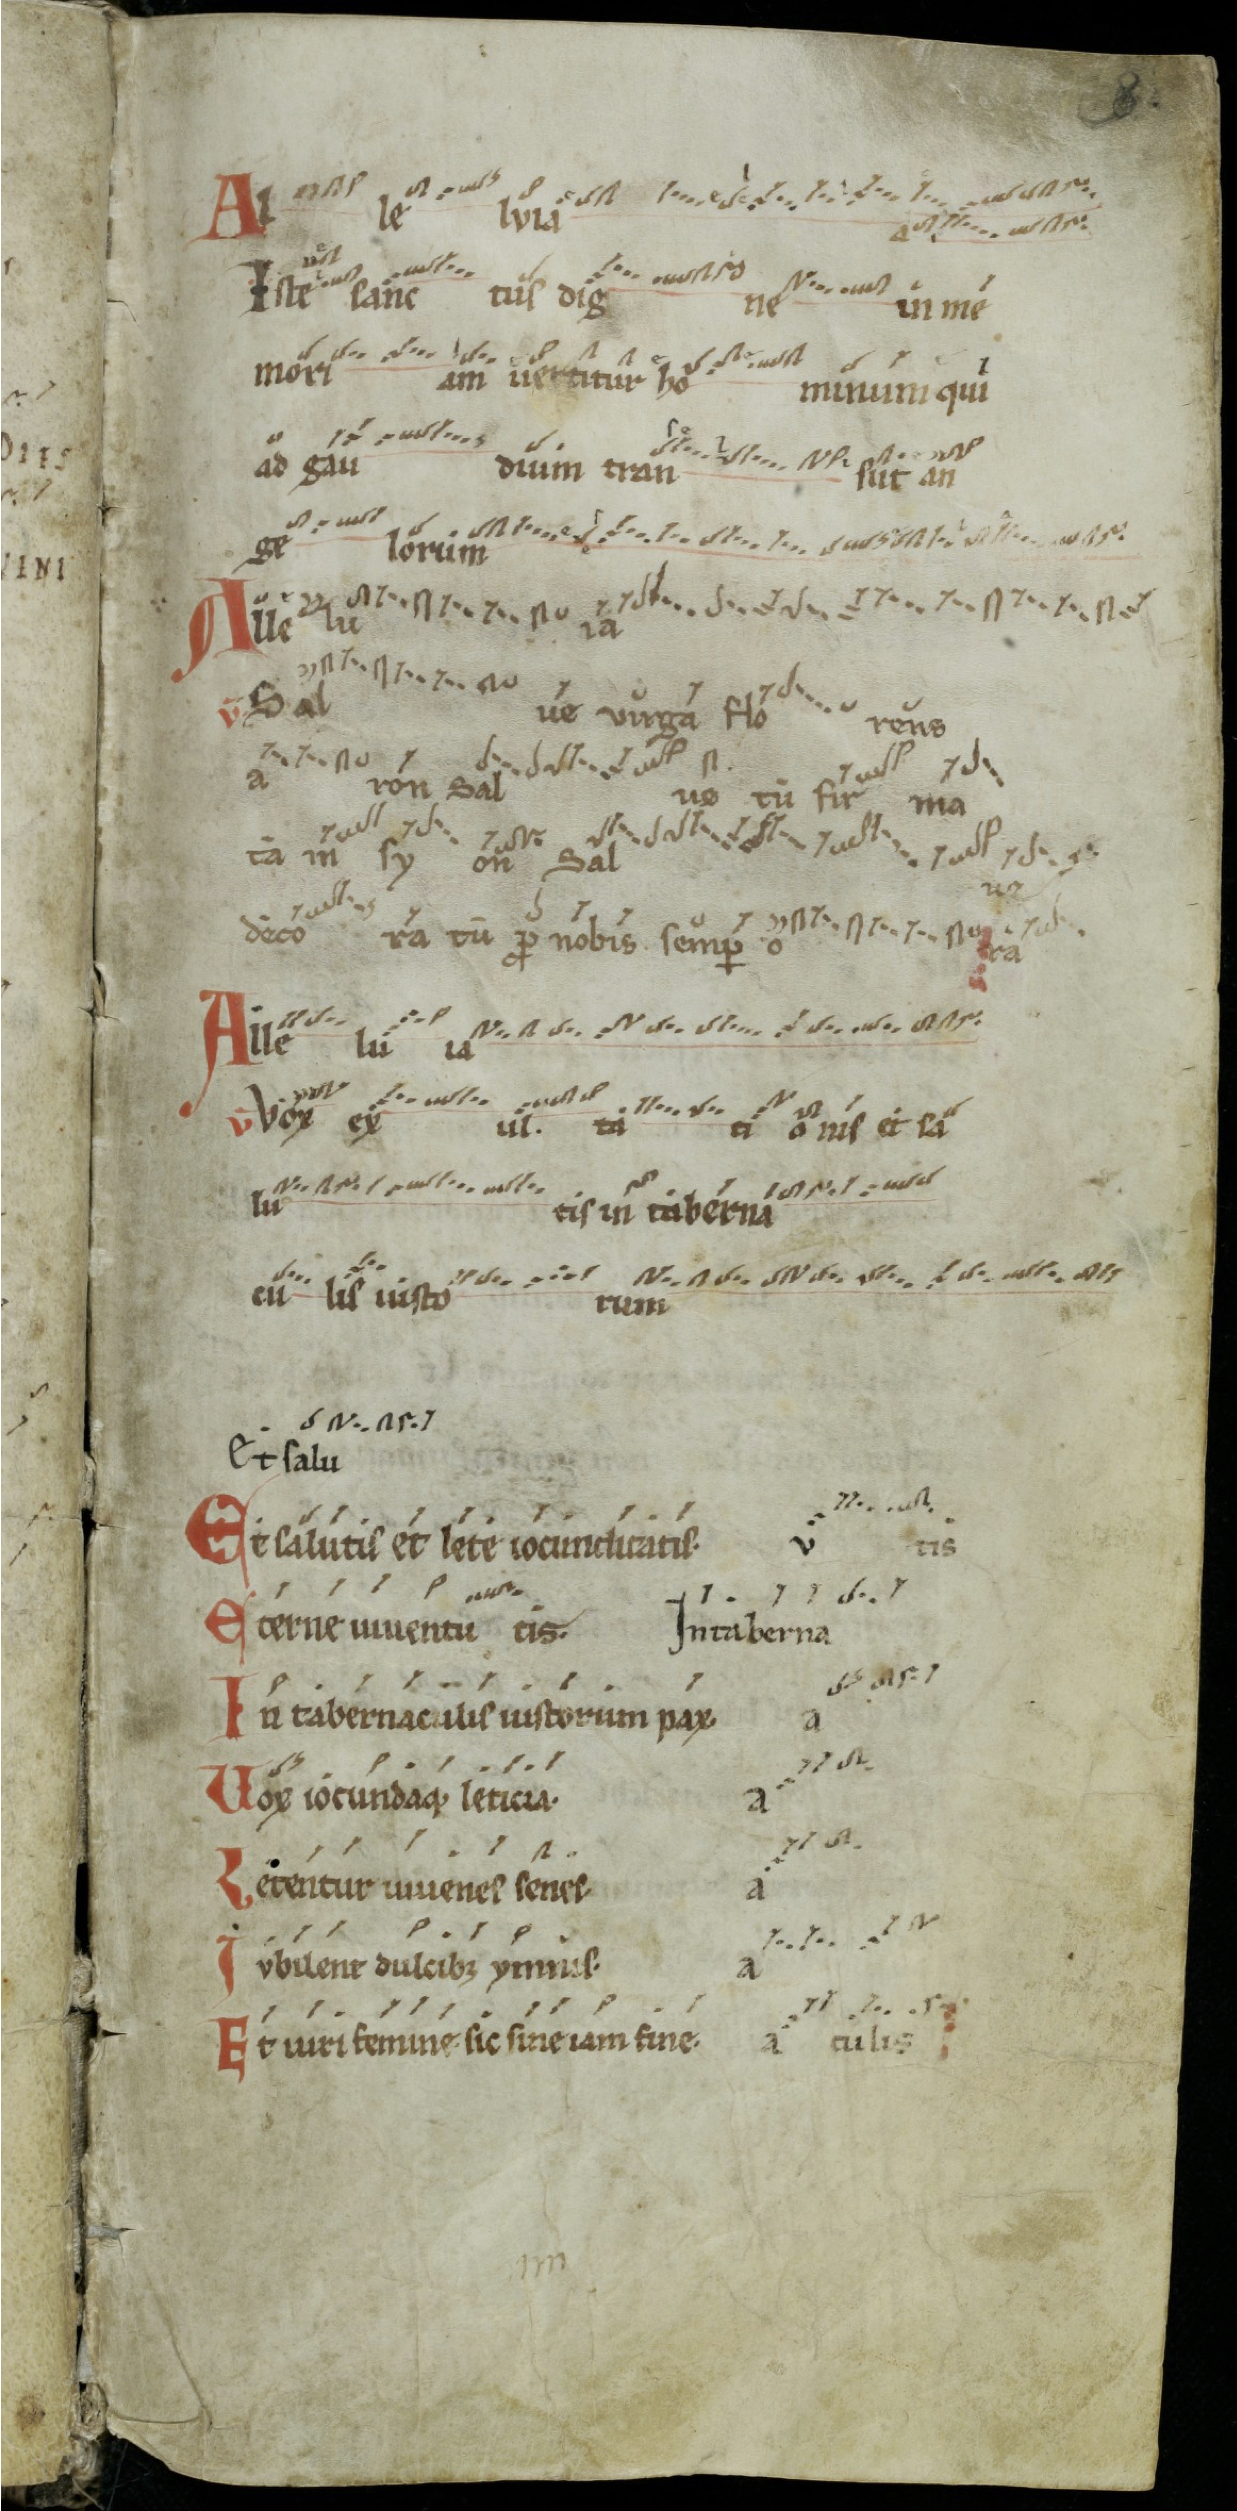 8
Al le lvia
a
Iste sanc tus dig ne in me
mori am uertitur ho minum qui
ad gau dium tran sit an
ge lorum
Alle lu ia
v Sal ue virga flo rens
a ron Sal ue tu fir ma
ta in sy on Sal
ue
deco ra tu p nobis semp o ra
Alle lu ia
v Vox ex ul. ta ti o nis et sa
lu tis in taberna
cu lis iusto rum
Et salu
Et salutis et lete iocunditatis. v tis
Eterne uiuentu tis. Intaberna
In tabernaculis iustorum pax. a
Uox iocundaq leticia. a
Letentur iuuenes senes. a
Ivbilent dulcibꝫ ymnis. a
Et uiri femine. sic sine iam fine. a culis
m